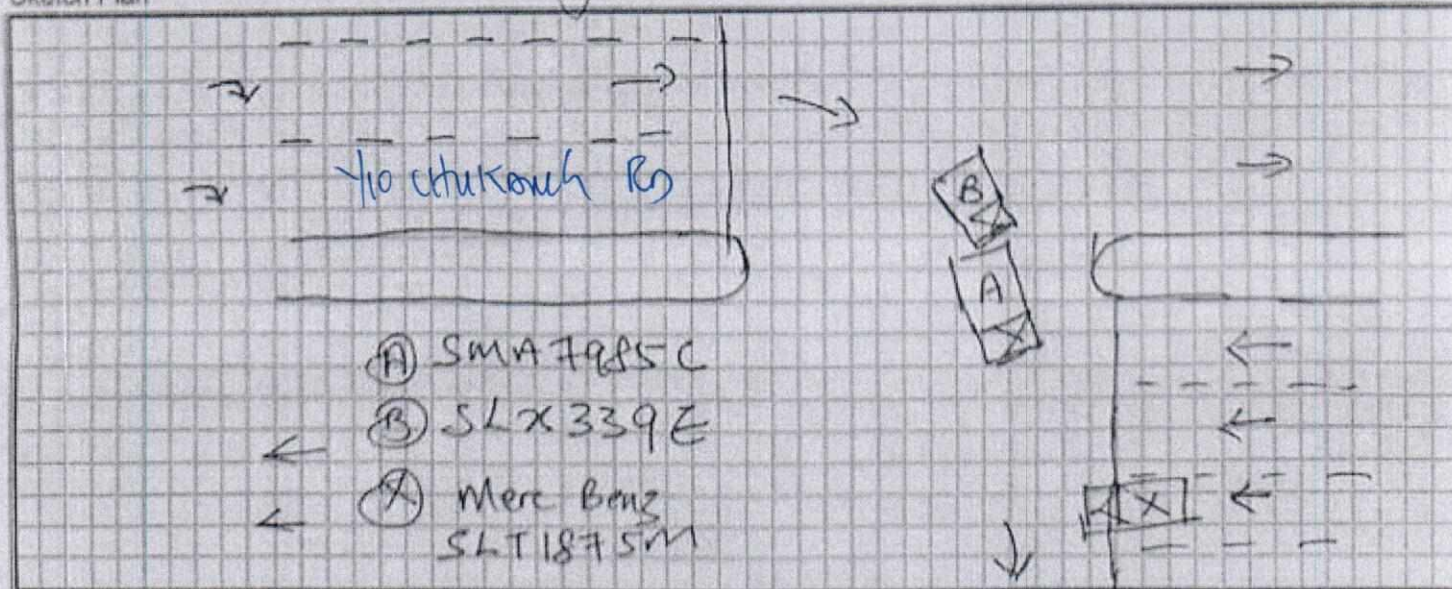 Yio Chukang Rd
B
A
A SMA7985C
B SLX339E
X Merc Benz
SLT1875M
X